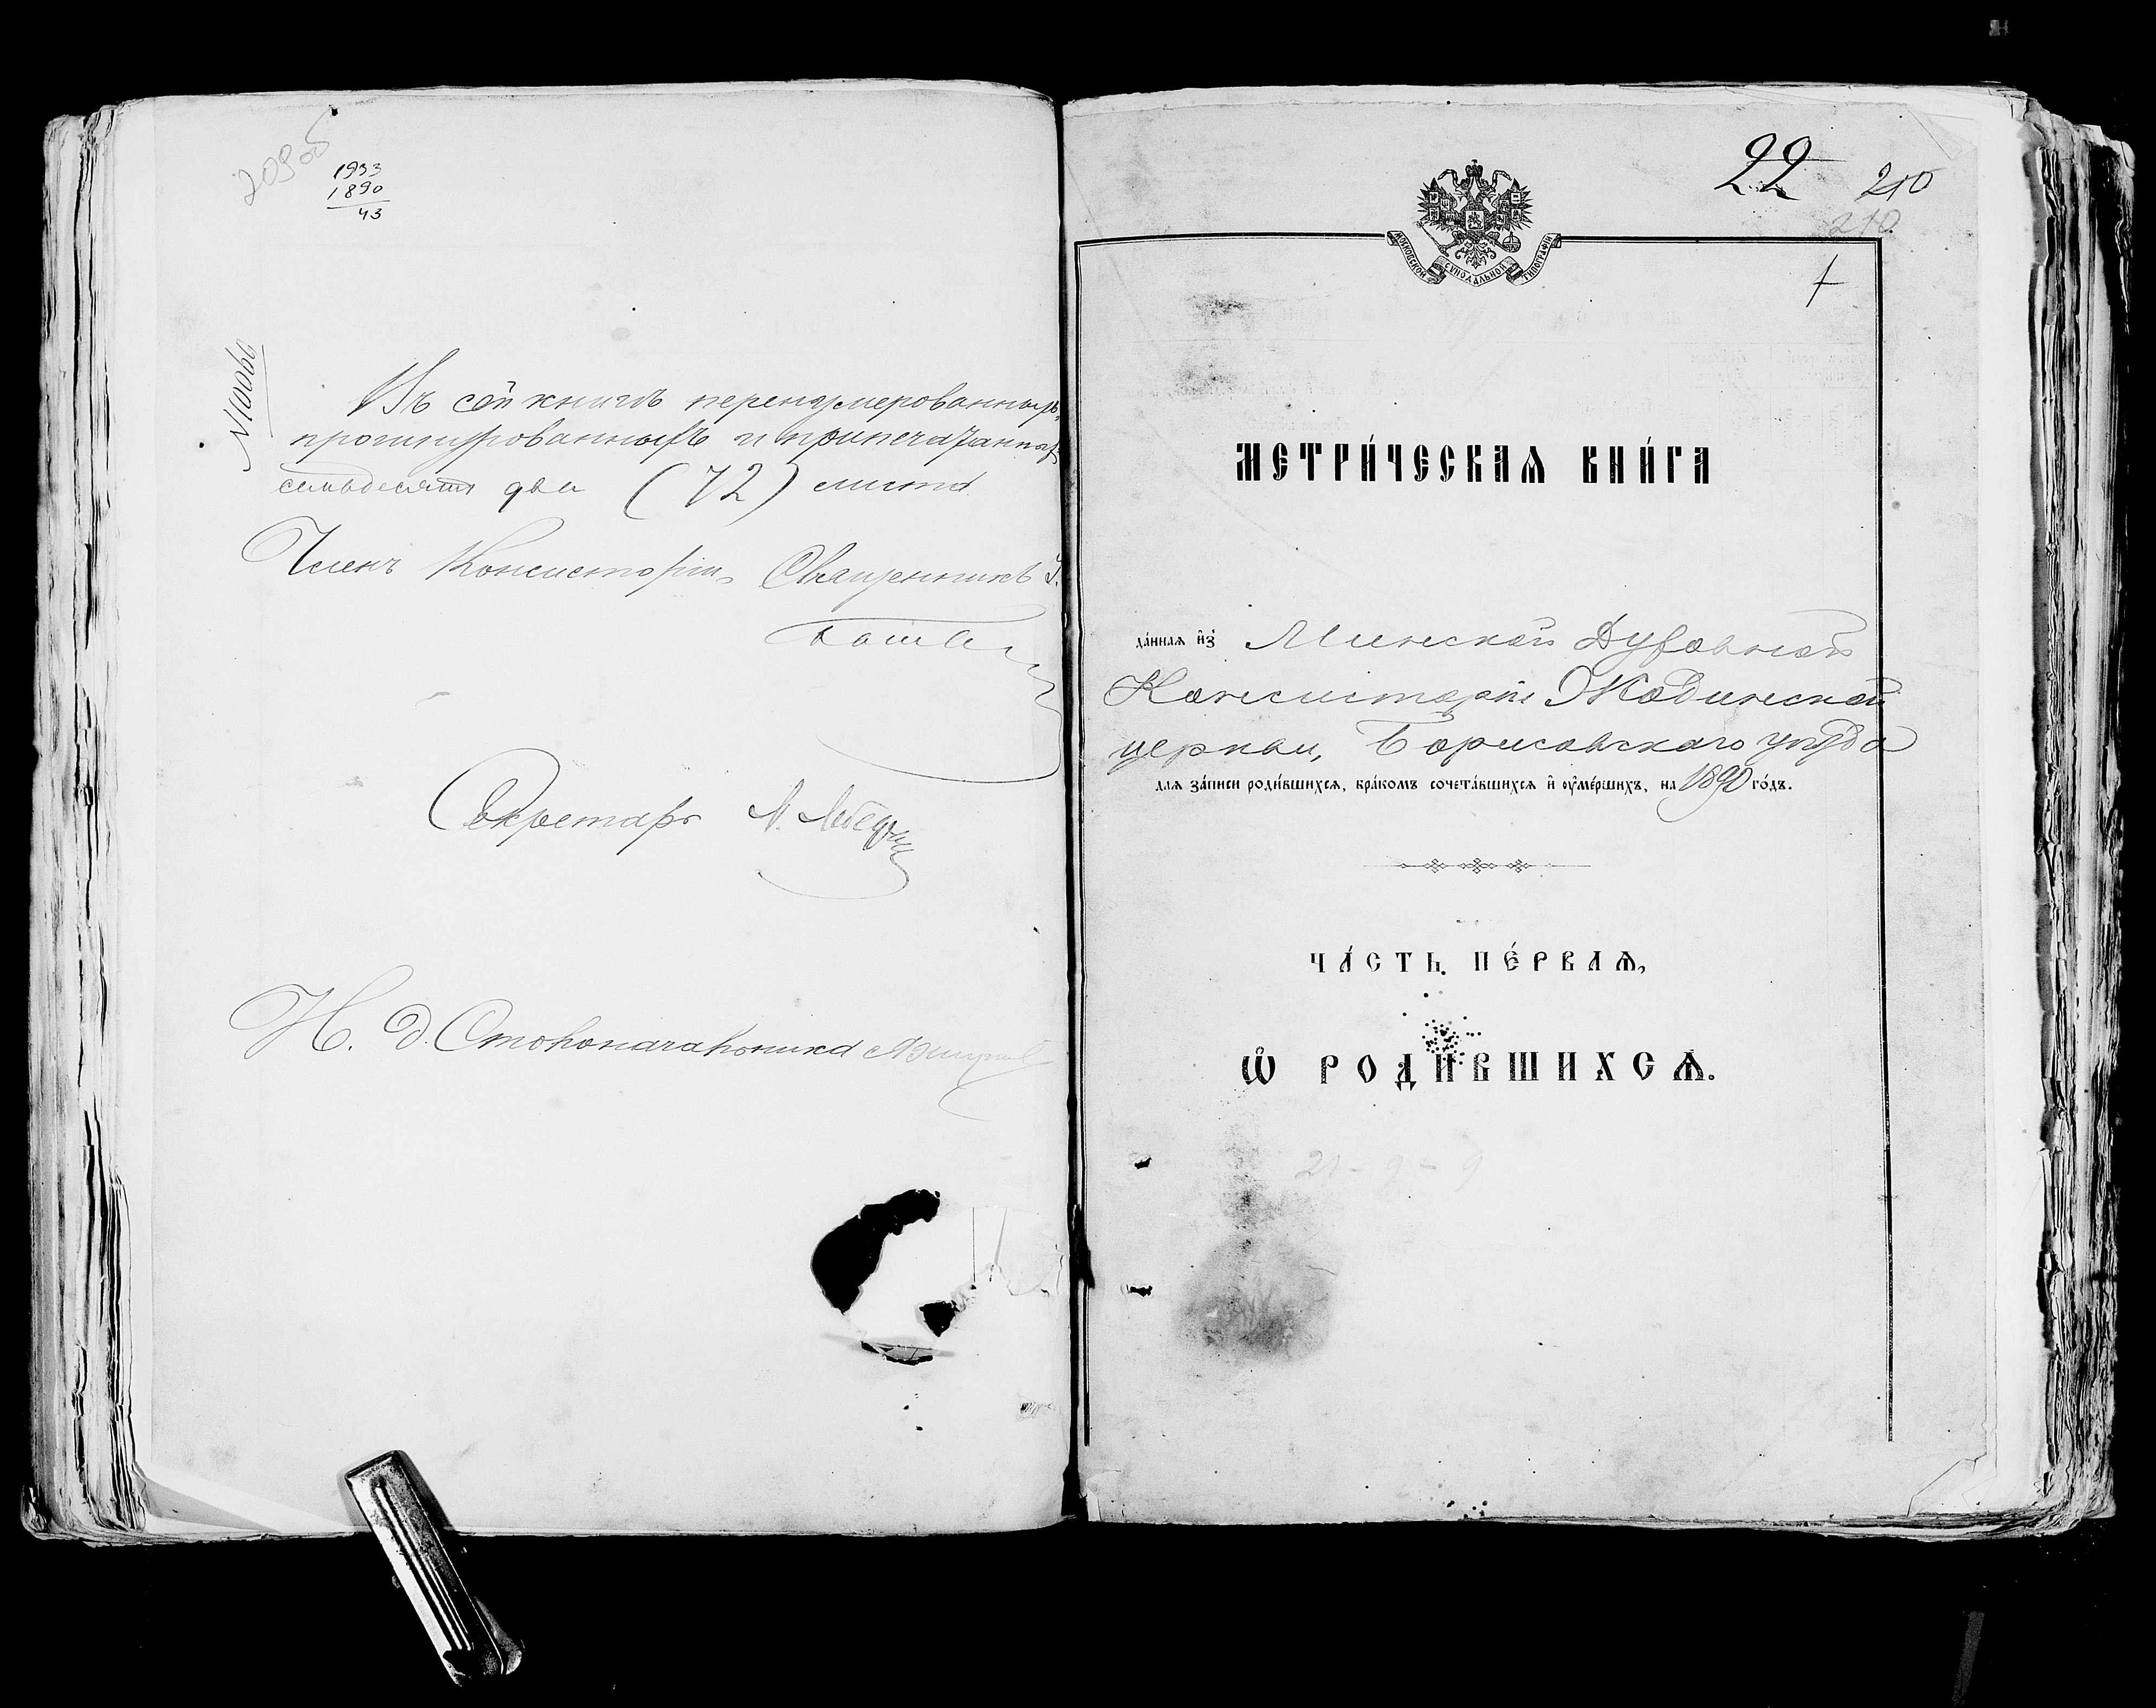 209об
1933
1890
43
Въ сей книгѣ перенумерованныхъ,
прошнурованныхъ и припечатанныхъ
семьдесятъ два (72) листа
Членъ Консисторіи, Священникъ
Секретарь
И. д. Столоначальника
22 210
210
МОСКОВСКОЙ СѴНОДАЛЬНОЙ ТИПОГРАФІИ
МЕТРИ́ЧЕСКАѦ КНИ́ГА
да́ннаѧ и҆з̾ Минской Духовной
Консисторіи Жодинской
церкви, Борисовскаго уѣзда
для за́писи роди́вшихсѧ, бра́комъ сочета́вшихсѧ и҆ ᲂу҆ме́ршихъ, на 1890 го́дъ.
ЧА́СТЬ ПЕ́РВАѦ,
Ѡ҆ РОДИ́ВШИХСѦ.